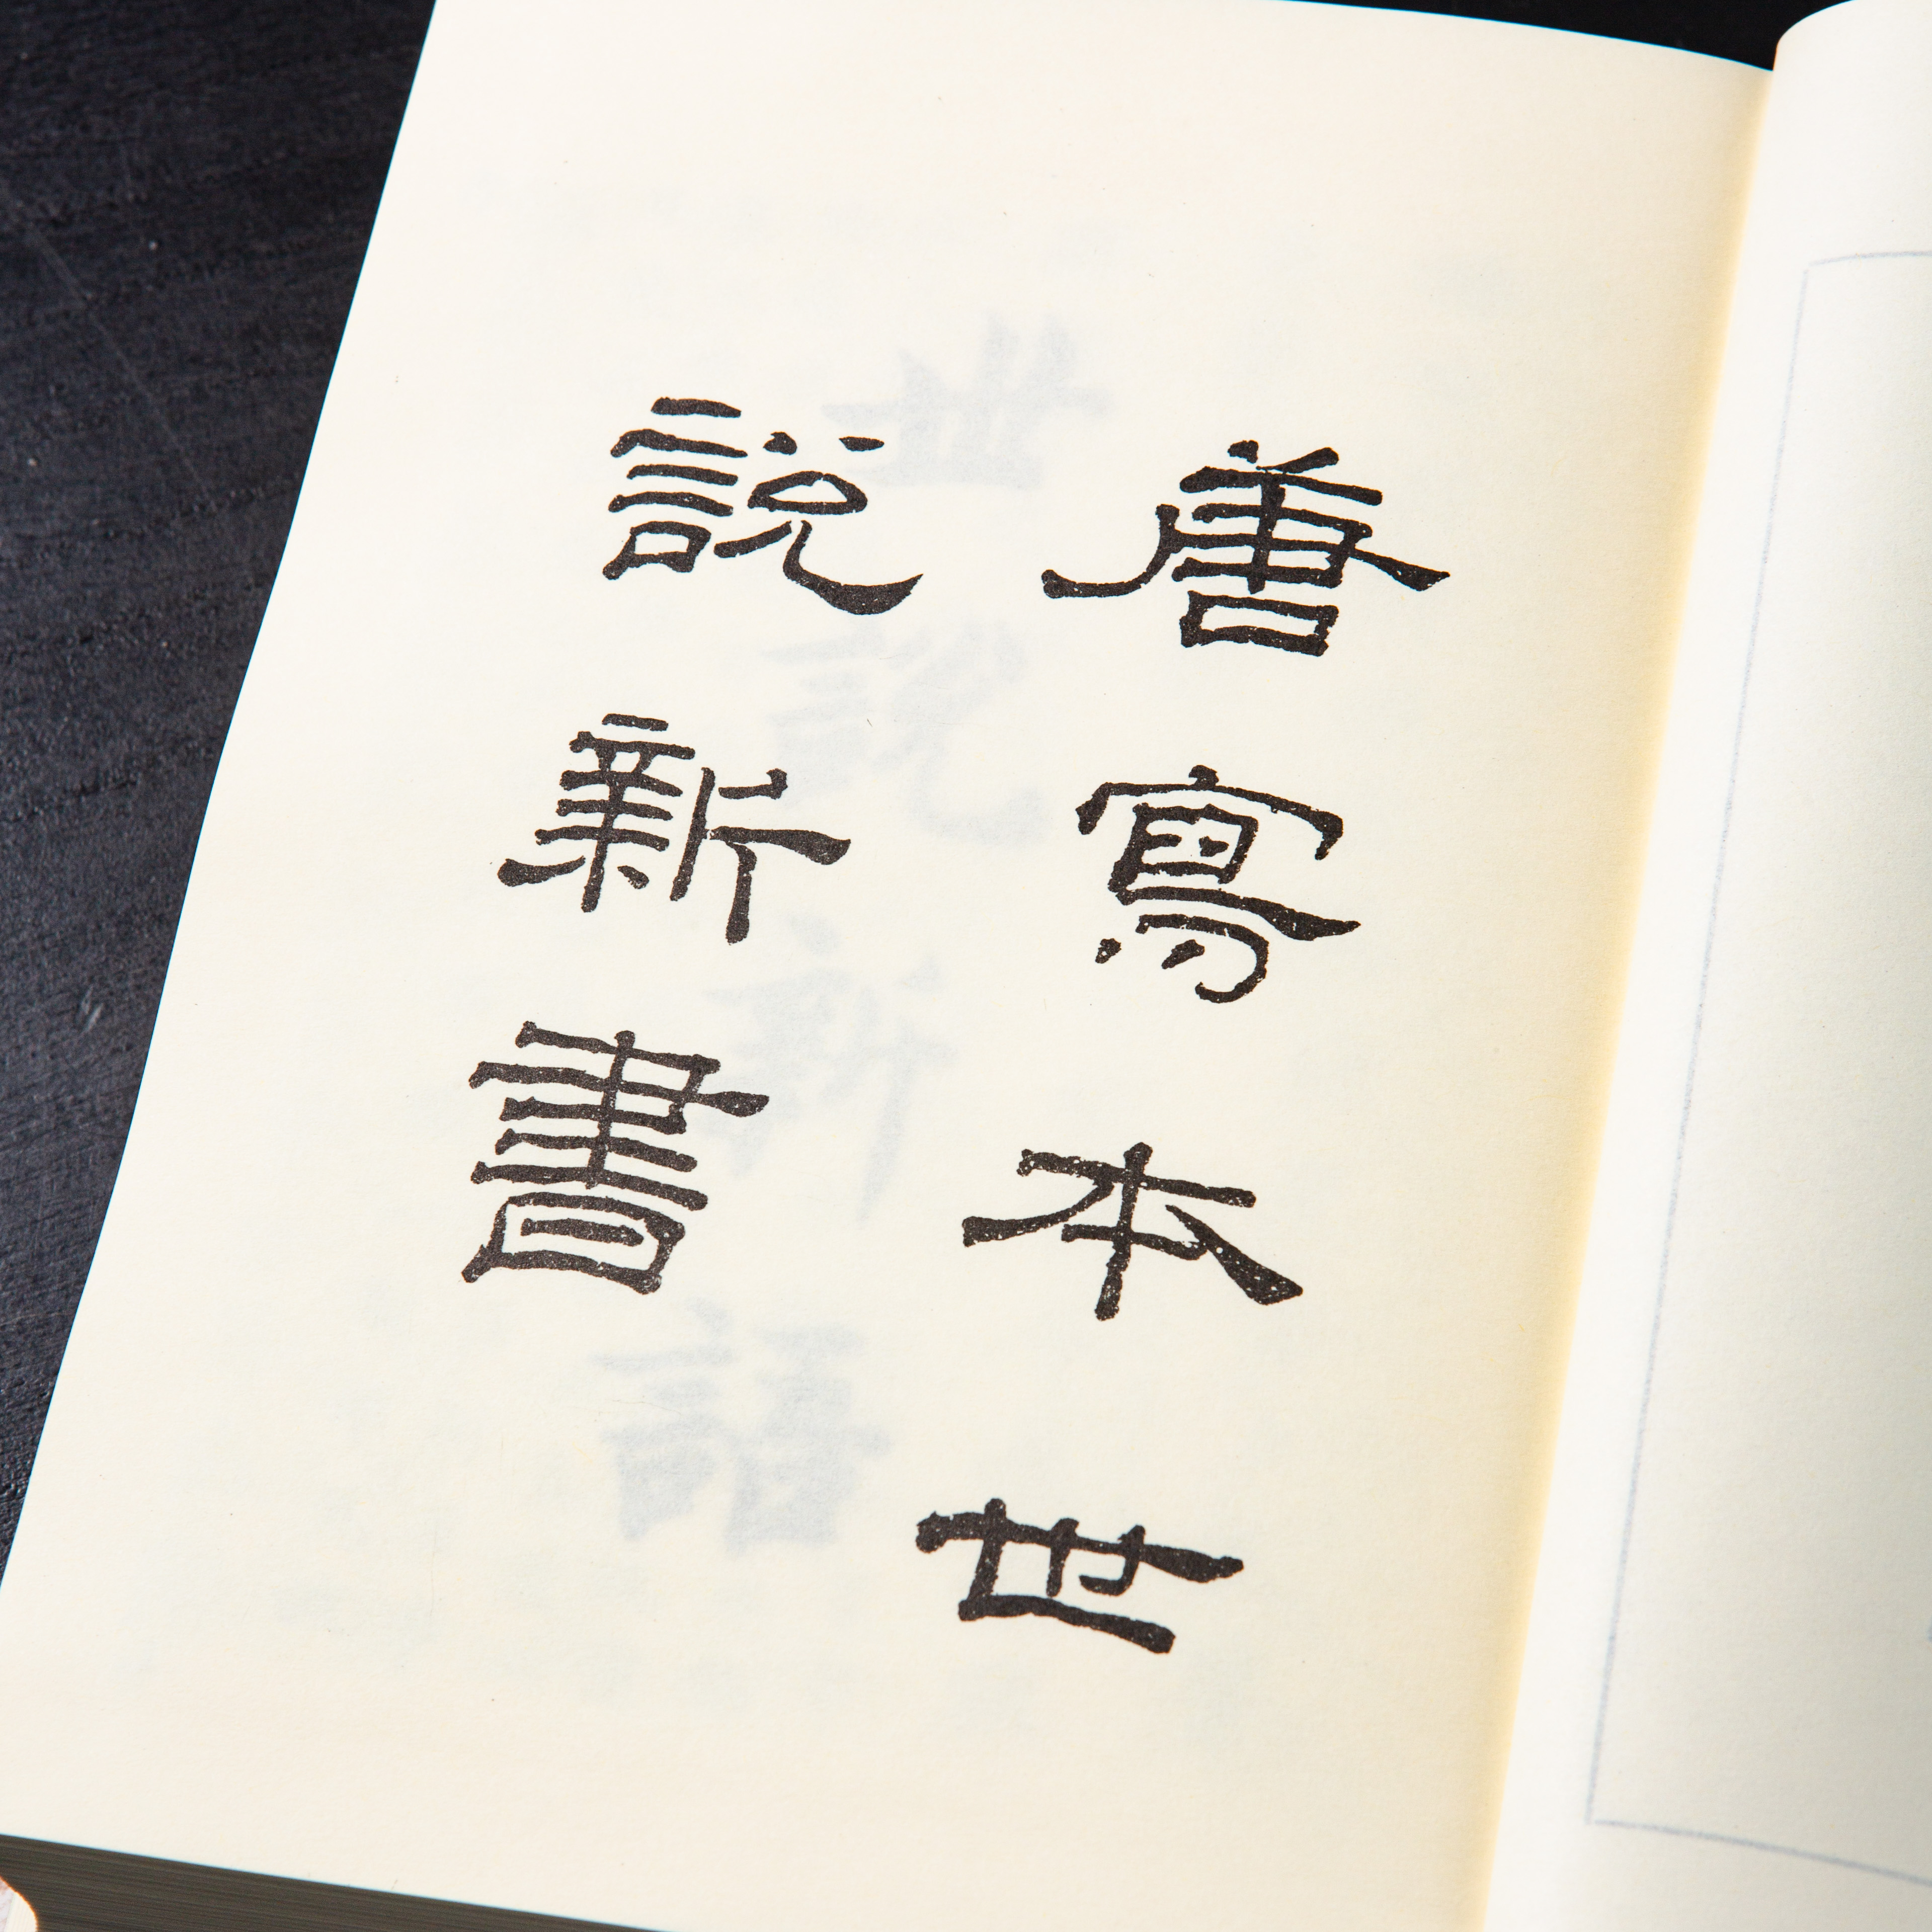 唐寫本世
說新書